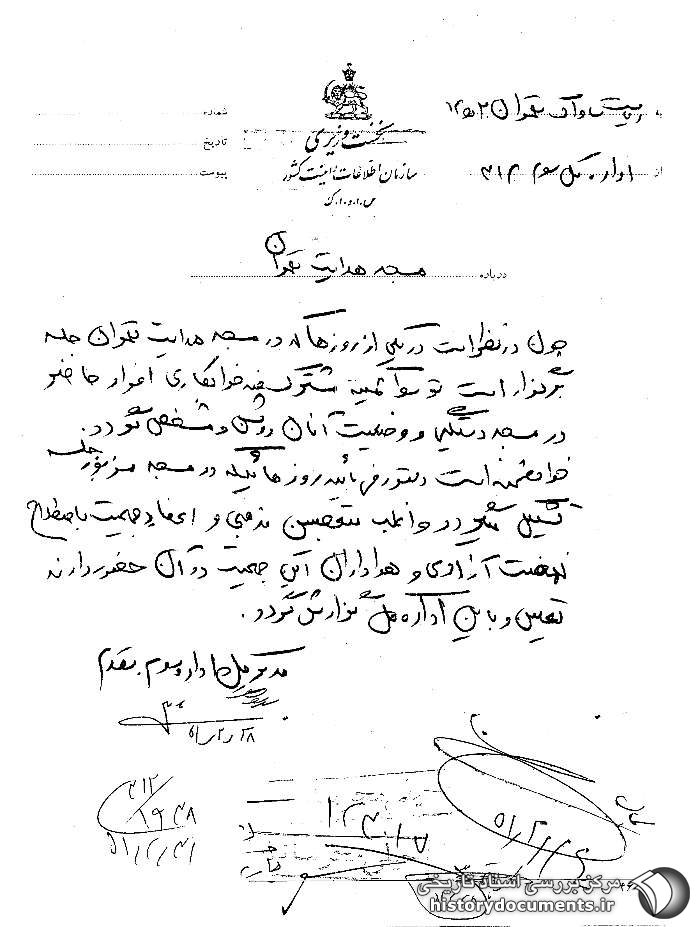 شماره
تاریخ
پیوست
نخست وزیری
سازمان اطلاعات و امنیت کشور
س.ا.و.ا.ک
به ریاست ساواک تهران ۲۰ ه ۱۲
از اداره کل سوم ۳۱۲
درباره مسجد هدایت تهران
چون در نظر است در یکی از روزهائیکه در مسجد هدایت تهران جلسه
برگزار است توسط کمیته مشترک ضد خرابکاری افراد حاضر
در مسجد دستگیر و وضعیت آنان روشن و مشخص گردد.
خواهشمند است دستور فرمائید روزهائیکه در مسجد مزبور جلسه
تشکیل میشود و اغلب متعصبین مذهبی و اعضاء جمعیت باصطلاح
نهضت آزادی و هواداران این جمعیت در آن حضور دارند
تعیین و باین اداره کل گزارش گردد.
مدیر کل اداره سوم. مقدم
۵۱/۲/۲۸
۳۱۲/۱۹۳۸
۵۱/۲/۳۱
مرکز بررسی اسناد تاریخی
historydocuments.ir